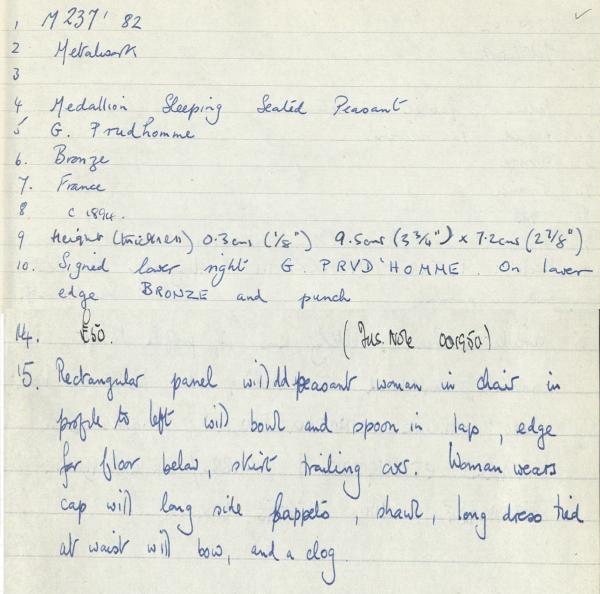 1 M 237' 82
2 Metalwork
3
4 Medallion Sleeping Seated Peasant
5 G. Prudhomme
6. Bronze
7. France
8 c 1894.
9 Height (thickness) 0.3cms (1/8") 9.5cms (3 3/4") x 7.2cms (2 7/8")
10. Signed lower right G. PRVD'HOMME. On lower
edge BRONZE and punch
14. £50. (Ins. Note 001950)
15. Rectangular panel with old peasant woman in chair in
profile to left with bowl and spoon in lap, edge
for floor below, skirt trailing over. Woman wears
cap with long side lappets, shawl, long dress tied
at waist with bow, and a clog.